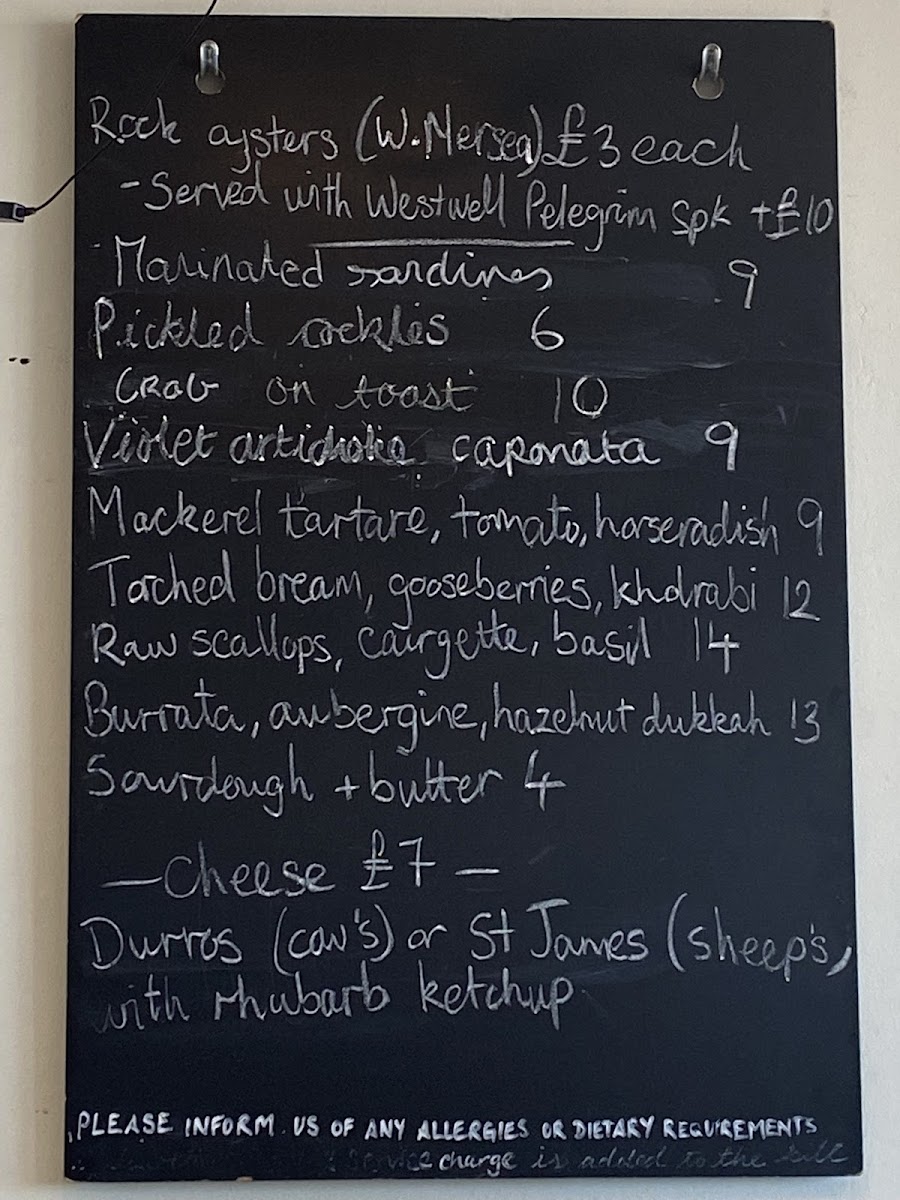 Rock oysters (W. Mersea) £3 each
- Served with Westwell Pelegrim spk + £10
Marinated sardines 9
Pickled cockles 6
CRAB on toast 10
Violet artichoke caponata 9
Mackerel tartare, tomato, horseradish 9
Torched bream, gooseberries, kholrabi 12
Raw scallops, courgette, basil 14
Burrata, aubergine, hazelnut dukkah 13
Sourdough + butter 4
— Cheese £7 —
Durros (cow's) or St James (sheep's,
with rhubarb ketchup
PLEASE INFORM US OF ANY ALLERGIES OR DIETARY REQUIREMENTS
service charge is added to the bill